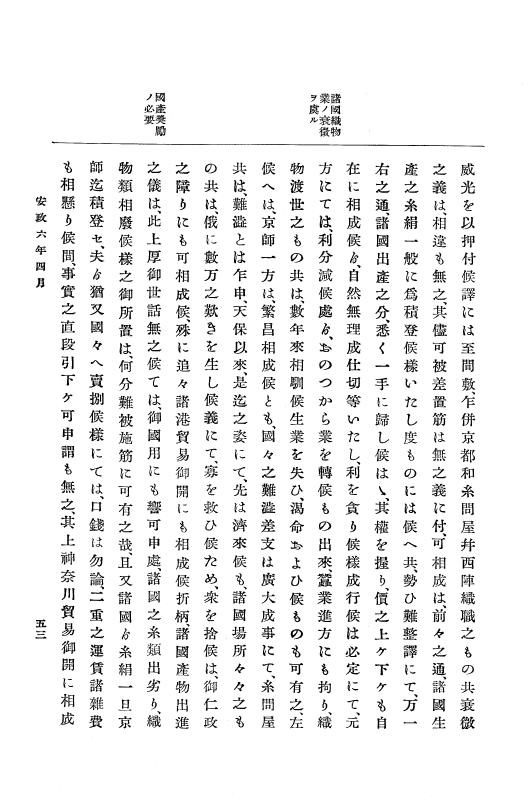 諸國織物
業ノ衰微
ヲ虞ル
國產奬勵
ノ必要
威光を以押付候譯には至間敷、乍併京都和糸問屋幷西陣織職之もの共衰微
之義は、相違も無之、其儘可被差置筋は無之義に付、可相成は、前々之通、諸國生
產之糸絹一般に爲積登候樣いたし度ものには候へ共、勢ひ難整譯にて、万一
右之通諸國出產之分、悉く一手に歸し候はゝ、其權を握り、價之上ヶ下ヶも自
在に相成候ゟ、自然無理成仕切等いたし、利を貪り候樣成行候は必定にて、元
方にては、利分減候處ゟ、おのつから業を轉候もの出來、蠶業進方にも拘り、織
物渡世之もの共は、數年來相馴候生業を失ひ、渴命およひ候ものも可有之、左
候へは、京師一方は、繁昌相成候とも、國々之難澁差支は廣大成事にて、糸問屋
共は、難澁とは乍申、天保以來、是迄之姿にて、先は濟來候も、諸國場所々々之も
の共は、俄に數万之歎きを生し候義にて、寡を救ひ候ため、衆を捨候は、御仁政
之障りにも可相成候、殊に追々諸港貿易御開にも相成候折柄、諸國產物出進
之儀は、此上厚御世話無之候ては、御國用にも響可申處、諸國之糸類出劣り、織
物類相廢候樣之御所置は、何分難被施筋に可有之哉、且又諸國ゟ糸絹一旦京
師迄積登セ、夫ゟ猶又國々へ賣捌候樣にては、口錢は勿論、二重之運賃諸雜費
も相懸り候間、事實之直段引下ヶ可申謂も無之、其上神奈川貿易御開に相成
安政六年四月
五三